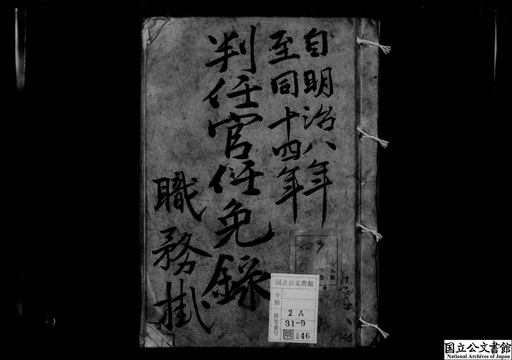 自明治八年
至同十四年
判任官任免録
職務掛
国立公文書館
分類
2A
31-9
146
国立公文書館
National Archives of Japan